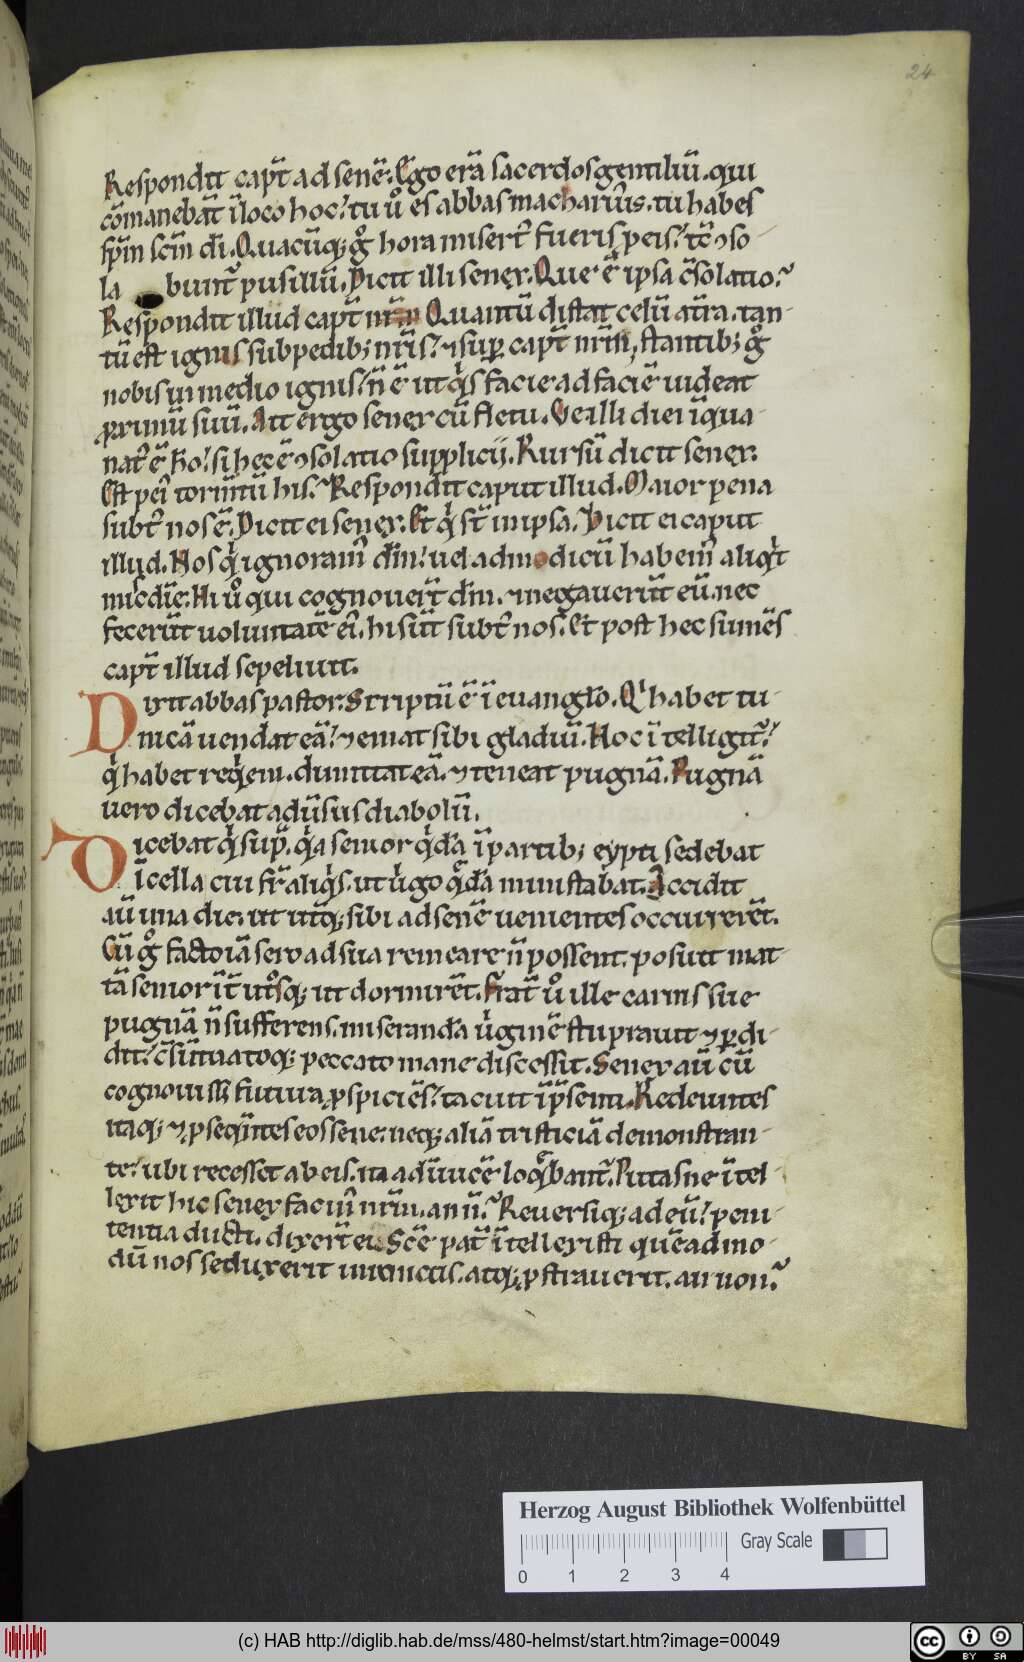 24
Respondit cap̄t ad senē. Ego erā sacerdos gentiliū. qui
cōmanebāt ī loco hoc. tu u̾ es abbas macharius. tu habes
sp̄m scm̄ dī. Quacūq; g̊ hora misert᾽ fueris peis. tc̄ ⁊so-
la buntᷣ pusillū. Dicit illi senex. Que ē ipsa c̄solatio?
Respondit illud cap̄t nrm̄ Quantū distat celū a tr̄a. tan-
tū est ignis sub pedib; nr̄is. ⁊ sup̱ cap̄t nrm̄, stantib; g̊
nobis in medio ignis. n̄ ē ut qͥs facie ad faciē uideat
ꝓximū suū. Ait ergo senex cū fletu. Ve illi diei ī qua
nat᾽ ē ho. si hec ē ⁊solatio supplicij. Rursū dicit senex.
Est pei᾽ torm̄tū his? Respondit caput illud. Maior pena
subt᾽ nos ē. Dicit ei senex. Et qͥ st̄ in ipsa. Dicit ei caput
illud. Nos qͥ ignoram᾽ dm̄. uel ad modicū habem᾽ aliqͥt
mīcdīe. Hi u̾ qui cognouer̄t dm̄. ⁊ negauerūt eū. nec
fecerūt uoluntatē ei᾽. hi sūt subt᾽ nos. Et post hec sumēs
cap̄t illud sepeliuit.
Dixit abbas pastor. Scriptū ē ī euanglo. Qͥ habet tu-
nicā uendat eā. ⁊ emat sibi gladiū. Hoc ītelligitᷣ.
qͥ habet req̄em. dimittat eā. ⁊ teneat pugnā. Pugnā
uero dicebat adūsus diabolū.
Dicebat qͥ sup̄. qͥa senior qͥdā ī partib; eypti sedebat
ī cella cui fr̄ aliqͥs. ut uͥgo q̄dā ministabat. Accidit
aū una die. ut utq; sibi ad senē uenientes occurrerēt.
Cū g̊ facto iā sero ad sua remeare n̄ possent. posuit mat-
tā senior īt᾽ utosq; ut dormirēt. Frat᾽ u̾ ille carnis sue
pugnā n̄ sufferens. miserandā uͥginē stuprauit ⁊ ꝑdi-
dit. c̄sūmatoq; peccato mane discessit. Senex aū cū
cognouiss& futura ꝓspiciēs. tacuit īp̄senti. Redeuntes
itaq; ⁊ ꝓseqūtes eos sene. neq; aliā tristiciā demonstran-
te. ubi recesset ab eis. ita adīuicē loq̄bantᷣ. Putasne ītel-
lexit hic senex facin᾽ nrm̄. an n̄? Reuersiq; ad eū. peni-
tentia ducti. dixer̄t ei. Scē pat᾽ ītellexisti quēadmo-
dū nos seduxerit inimicus. atq; ꝓstrauerit. an non?
Herzog August Bibliothek Wolfenbüttel
Gray Scale
0 1 2 3 4
(c) HAB http://diglib.hab.de/mss/480-helmst/start.htm?image=00049
cc BY SA